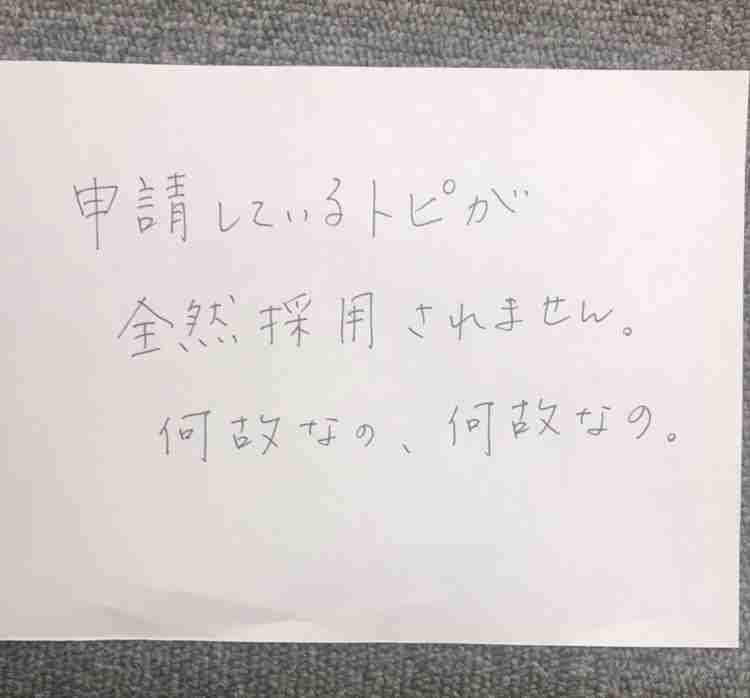 申請しているトピが
全然採用されません。
何故なの、何故なの。